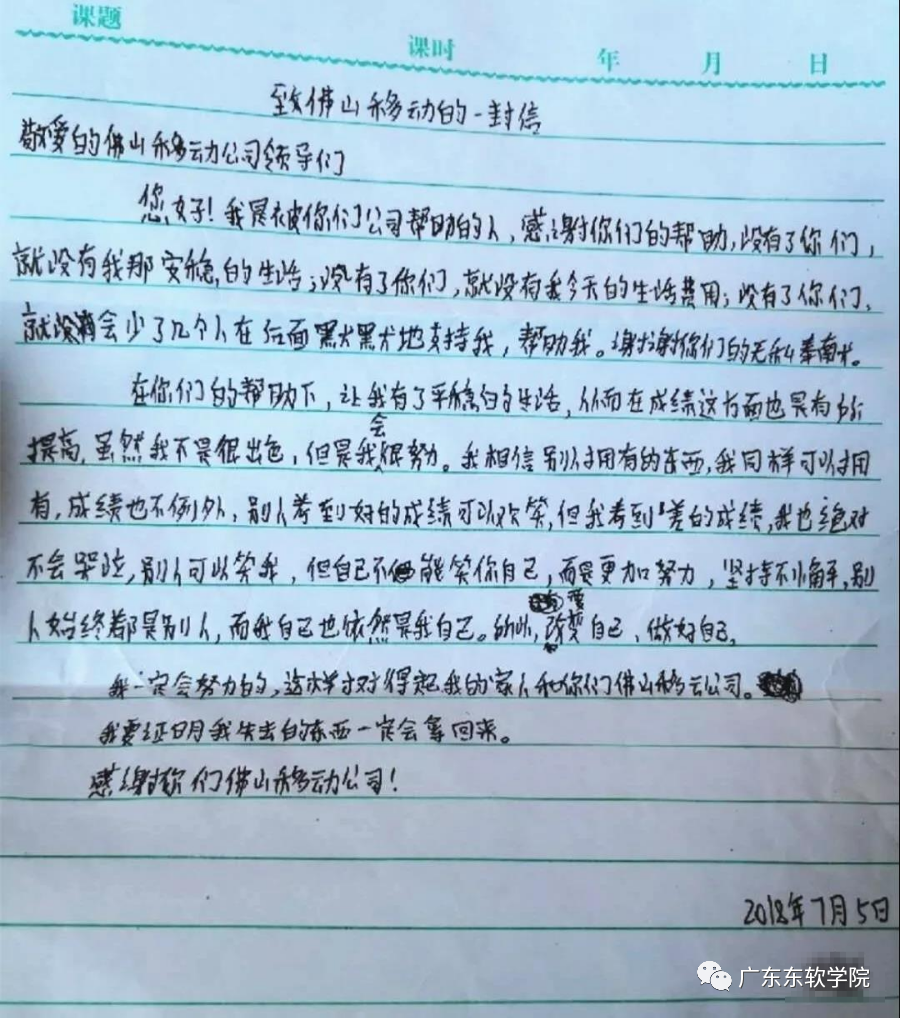 课题
课时 年 月 日
致佛山移动的一封信
敬爱的佛山移动公司领导们
您好！我是被你们公司帮助的人，感谢你们的帮助，没有了你们，
就没有我那安稳的生活；没有了你们，就没有我今天的生活费用；没有了你们，
就会少了几个人在后面默默地支持我，帮助我。谢谢你们的无私奉献。
在你们的帮助下，让我有了平稳的生活，从而在成绩这方面也是有所
提高，虽然我不是很出色，但是我会很努力。我相信别人拥有的东西，我同样可以拥
有，成绩也不例外，别人考到好的成绩可以欢笑，但我考到差的成绩，我也绝对
不会哭泣，别人可以笑我，但自己不能笑你自己，而是更加努力，坚持不懈，别
人始终都是别人，而我自己也依然是我自己。所以，改变自己，做好自己，
我一定会努力的，这样才对得起我的家人和你们佛山移动公司。
我要证明我失去的东西一定会拿回来。
感谢你们佛山移动公司！
2018年7月5日
广东东软学院